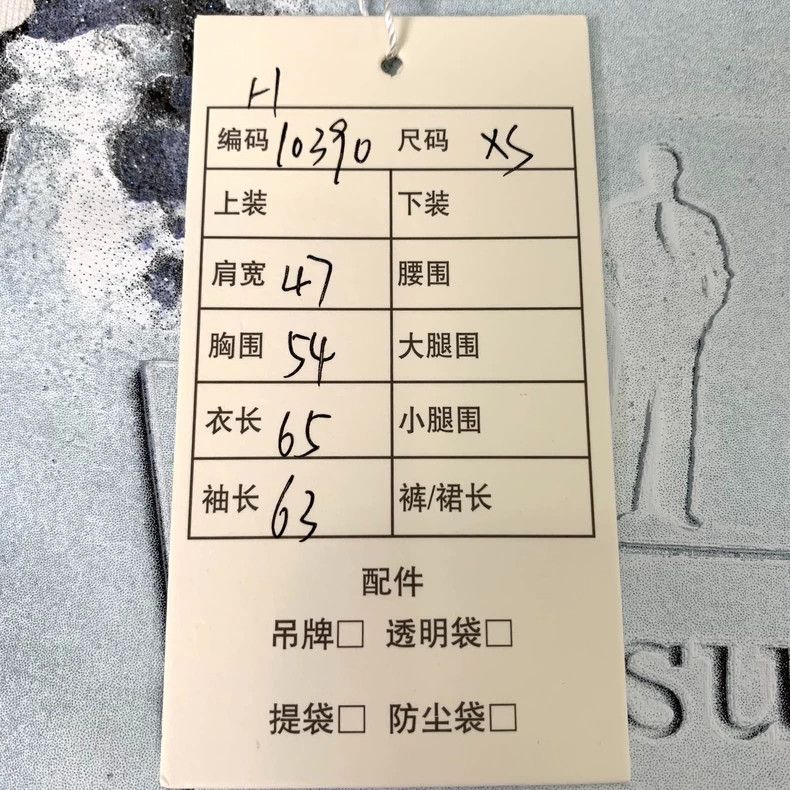 H
编码 10390 尺码 XS
上装 下装
肩宽 47 腰围
胸围 54 大腿围
衣长 65 小腿围
袖长 63 裤/裙长
配件
吊牌□ 透明袋□
提袋□ 防尘袋□
su